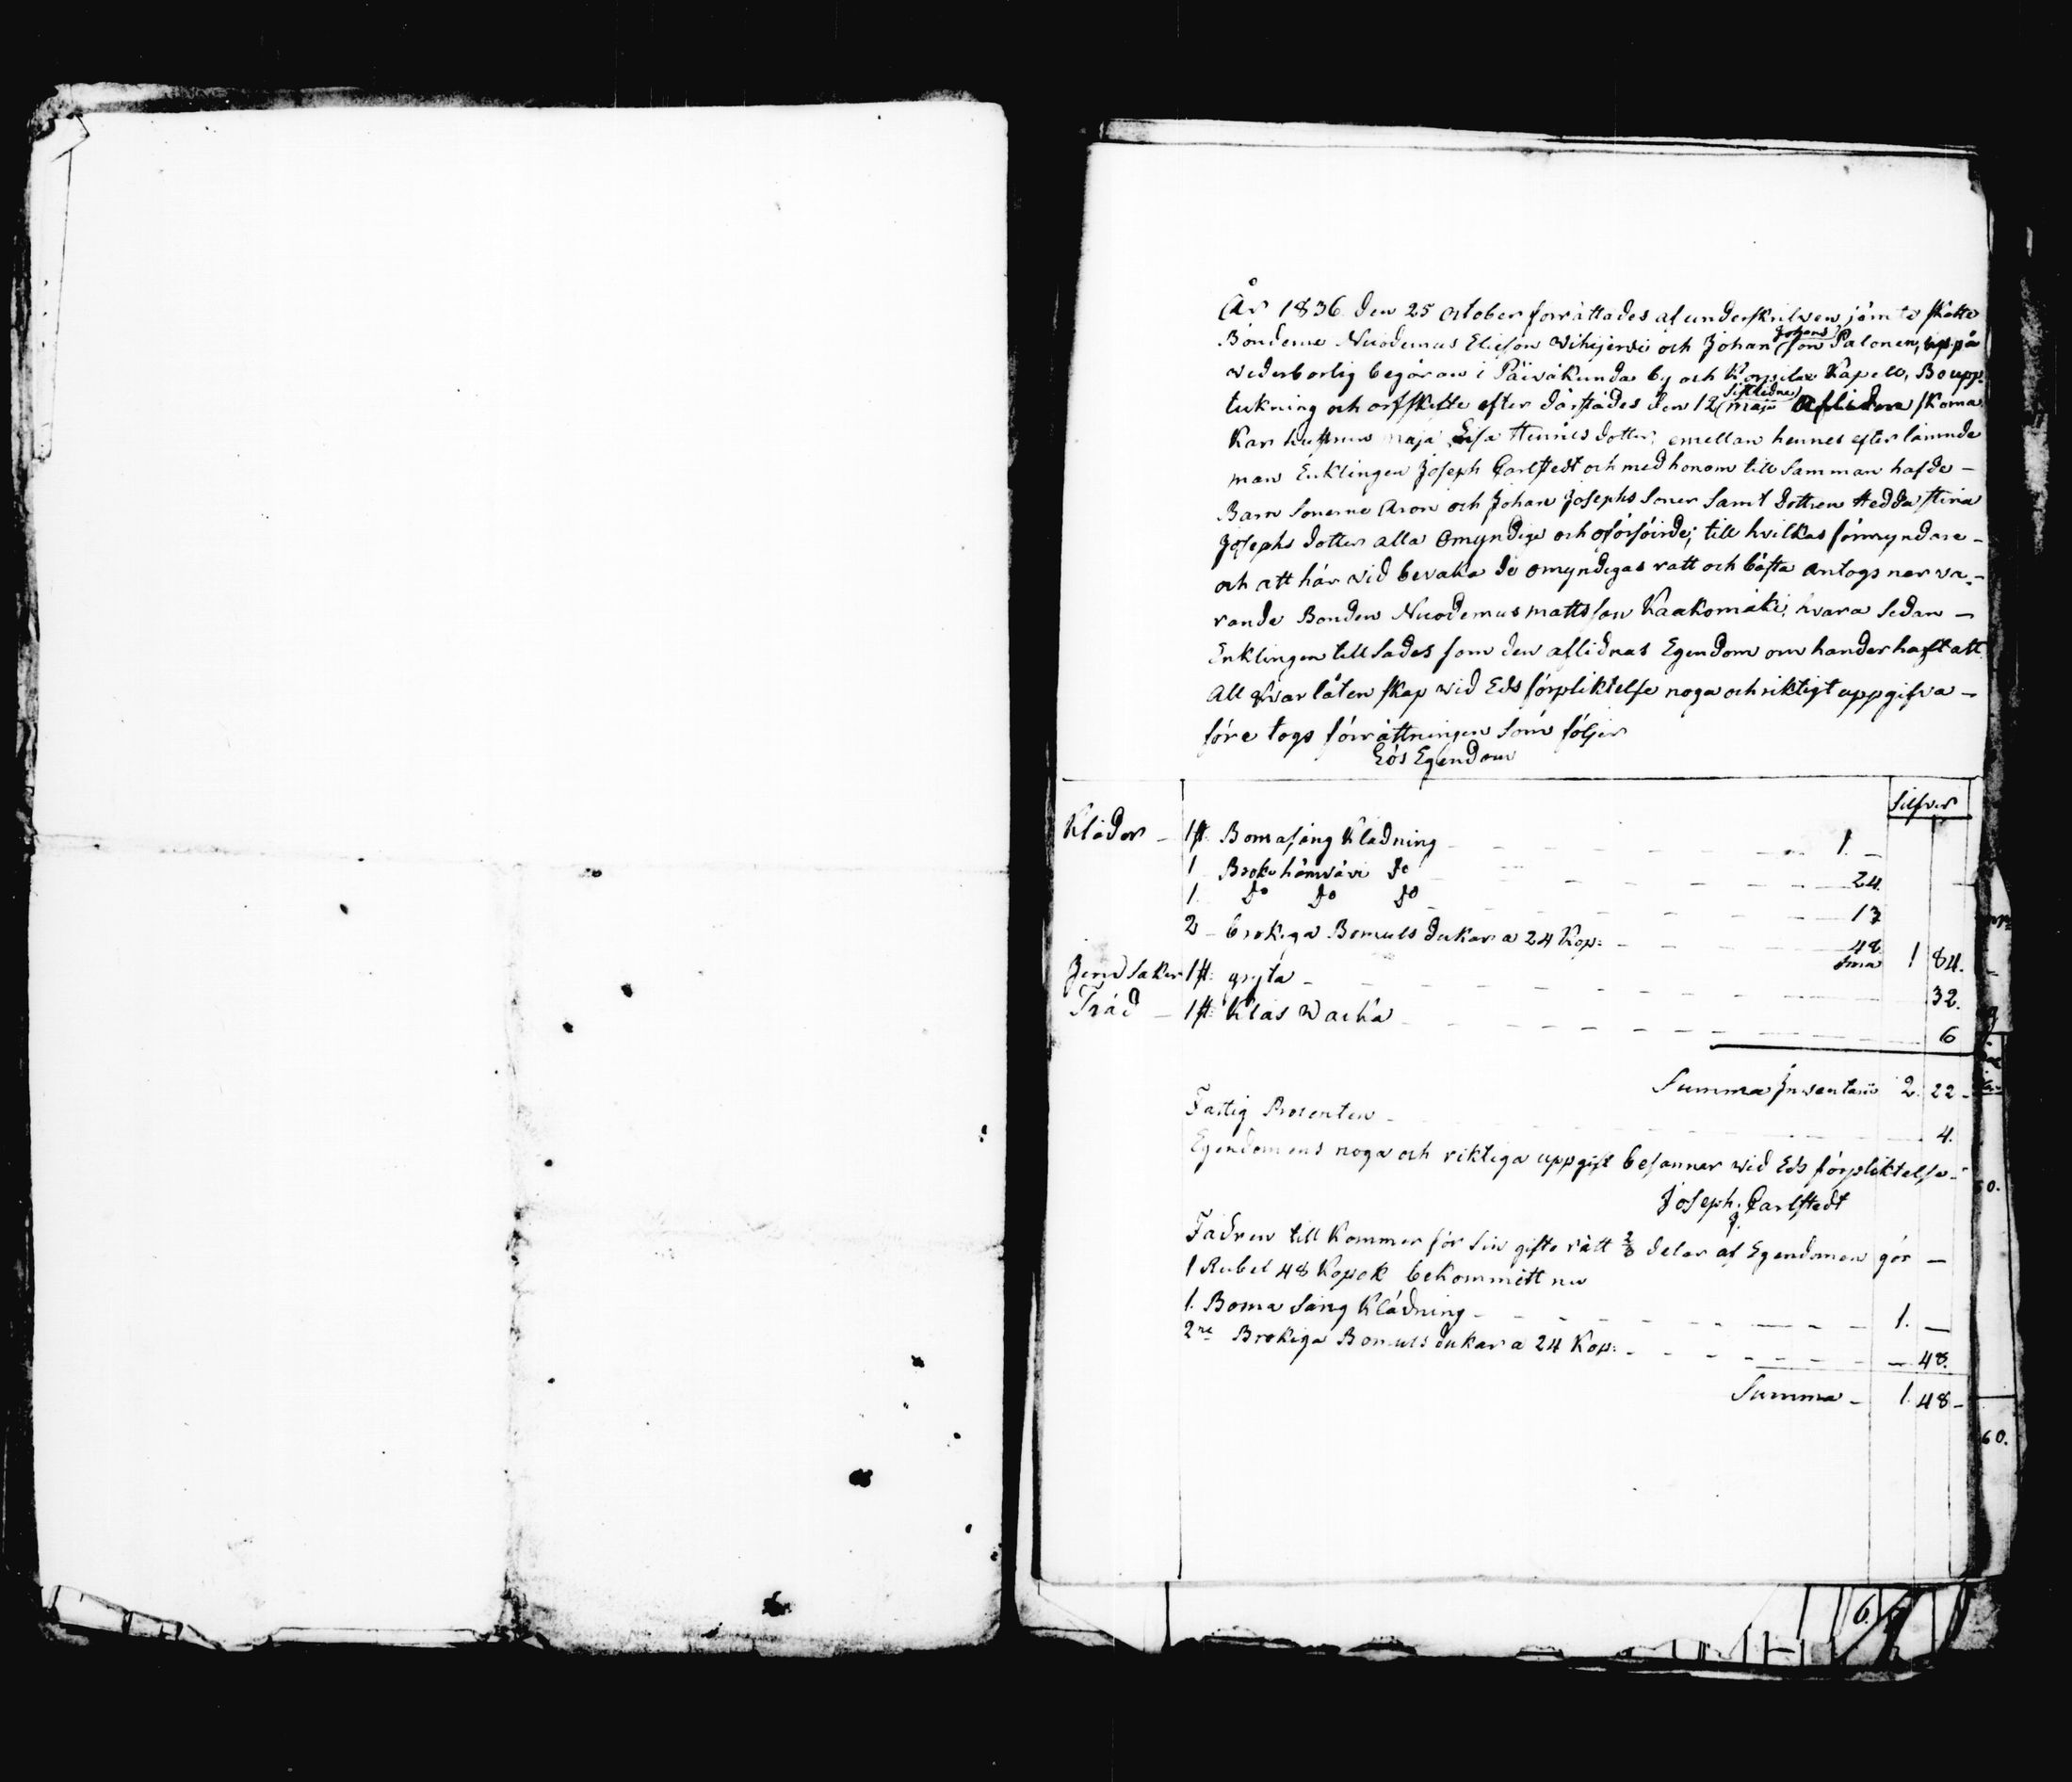 År 1836 den 25 October förrättades af underskrifven jämte skatte
Bönderne Nicodemus Elieson Wihijerwi och Johan Johans son Palonen, uppå
wederbörlig begäran i Päiväkunda by och Korpilax Kapell, Boupp
tekning och arfskifte efter därstädes den 12 sistledne maji Aflidna skoma
kar hustrun maja Lisa Hinricsdotter, emellan hennes efterlämnde
man Enklingen Joseph Carlstedt och med honom till samman hafde –
Barn Sönerne Aron och Johan Josephs Söner samt dottren Hedda Stina
Josephs dotter alla omyndige och oförsörde; till hvilkas förmyndare –
och att här wid bevaka de omyndigas rätt och bästa antogs närva –
rande Bonden Nicodemus mattsson Kaakomäki, hvara sedan –
Enklingen till sades som den aflidnas Egendom om händer haft att
All Kvarlåtenskap wid Eds förpliktelse noga och riktigt uppgifva –
före togs förrättningen som följer
Lös Egendom
Silfver
Kläder – 1 st. Bomasäng Klädning – 1. –
1 Brok. hämväv do – 24.
1. do do do – 13
2 – brokiga Bomulls dukar a 24 Kop: – 48. 1 84.
Jern Saker 1 st: gryta – 32.
Träd – 1 st: Kläs Wacka – 6
Summa Inventarii 2. 22 –
Fattig Procenten – 4.
Egendomens noga och riktiga uppgift besannar wid Eds förpliktelse –
Joseph. Carlstedt
Fadren till kommer för sin gifto rätt 2/3 delar af Egendomen gör –
1 Rubel 48 Kopek bekommitt nu
1. Boma säng Klädning – 1. –
2ne Brokiga Bomulls dukar a 24 Kop: – 48.
Summa – 1. 48 –